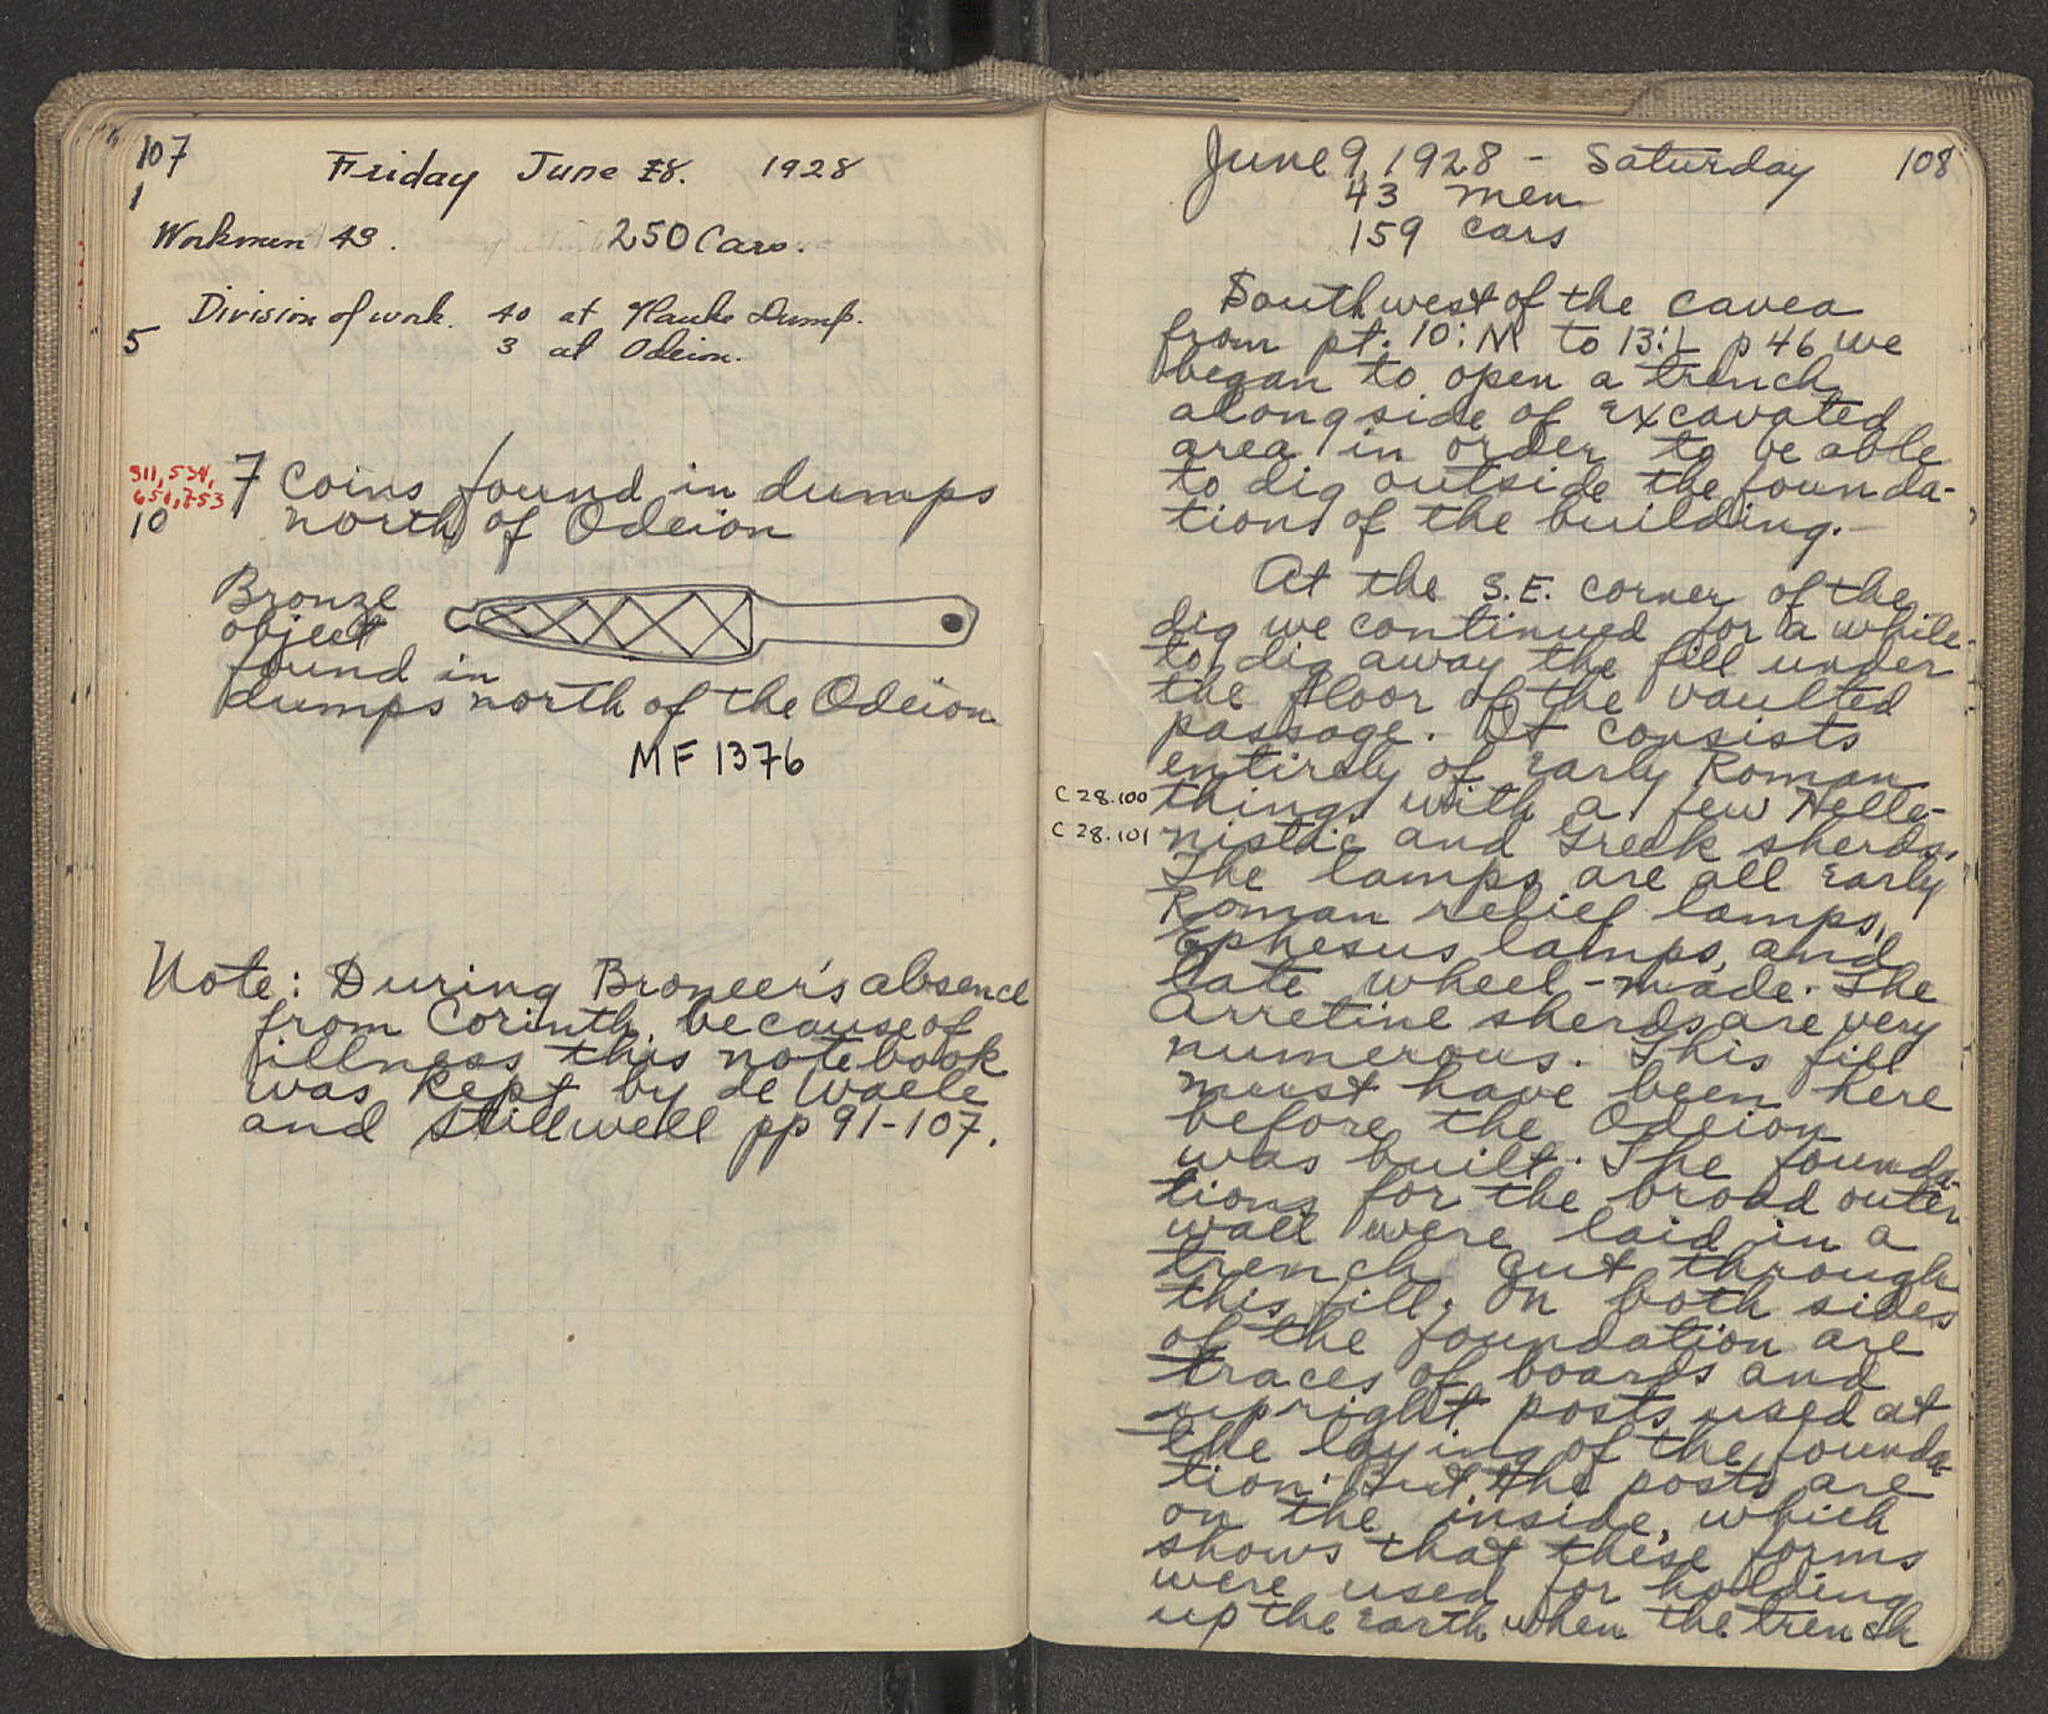 107
1
Friday June 8. 1928
Workmen 43. 250 Cars.
Division of work. 40 at Glauke Dump.
5
3 at Odeion.
311, 534,
651, 753
7 coins found in dumps
10
north of Odeion
Bronze
object
found in
dumps north of the Odeion
MF 1376
Note: During Broneer's absence
from Corinth, because of
illness this notebook
was kept by de Waele
and Stillwell pp 91-107.
June 9, 1928 - Saturday 108
43 men
159 cars
Southwest of the cavea
from pt. 10:M to 13:L p 46 we
began to open a trench
alongside of excavated
area in order to be able
to dig outside the founda-
tions of the building.-
At the S.E. corner of the
dig we continued for a while
to dig away the fill under
the floor of the vaulted
passage. It consists
entirely of early Roman
C 28.100 things with a few Helle-
C 28.101 nistic and Greek sherds.
The lamps are all early
Roman relief lamps,
Ephesus lamps, and
late wheel-made. The
Arretine sherds are very
numerous. This fill
must have been here
before the Odeion
was built. The founda-
tions for the broad outer
wall were laid in a
trench cut through
this fill. On both sides
of the foundation are
traces of boards and
upright posts used at
the laying of the founda-
tion. But the posts are
on the inside, which
shows that these forms
were used for holding
up the earth when the trench